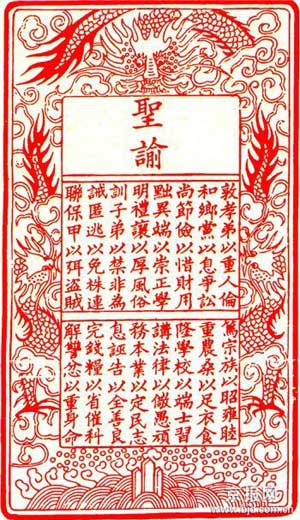 聖諭
敦孝弟以重人倫
篤宗族以昭雍睦
和鄉黨以息爭訟
重農桑以足衣食
尚節儉以惜財用
隆學校以端士習
黜異端以崇正學
講法律以儆愚頑
明禮讓以厚風俗
務本業以定民志
訓子弟以禁非為
息誣告以全善良
誡匿逃以免株連
完錢糧以省催科
聯保甲以弭盜賊
解讐忿以重身命
京报网
www.bjd.com.cn